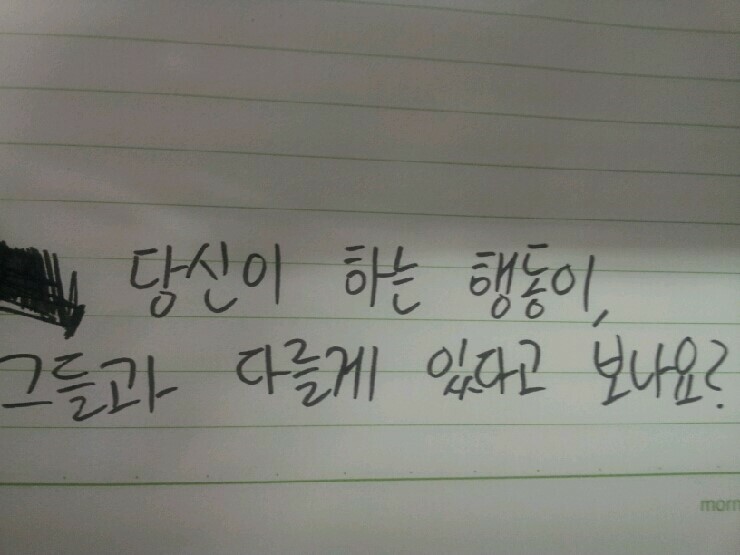 당신이 하는 행동이,
그들과 다를게 있다고 보나요?
morn